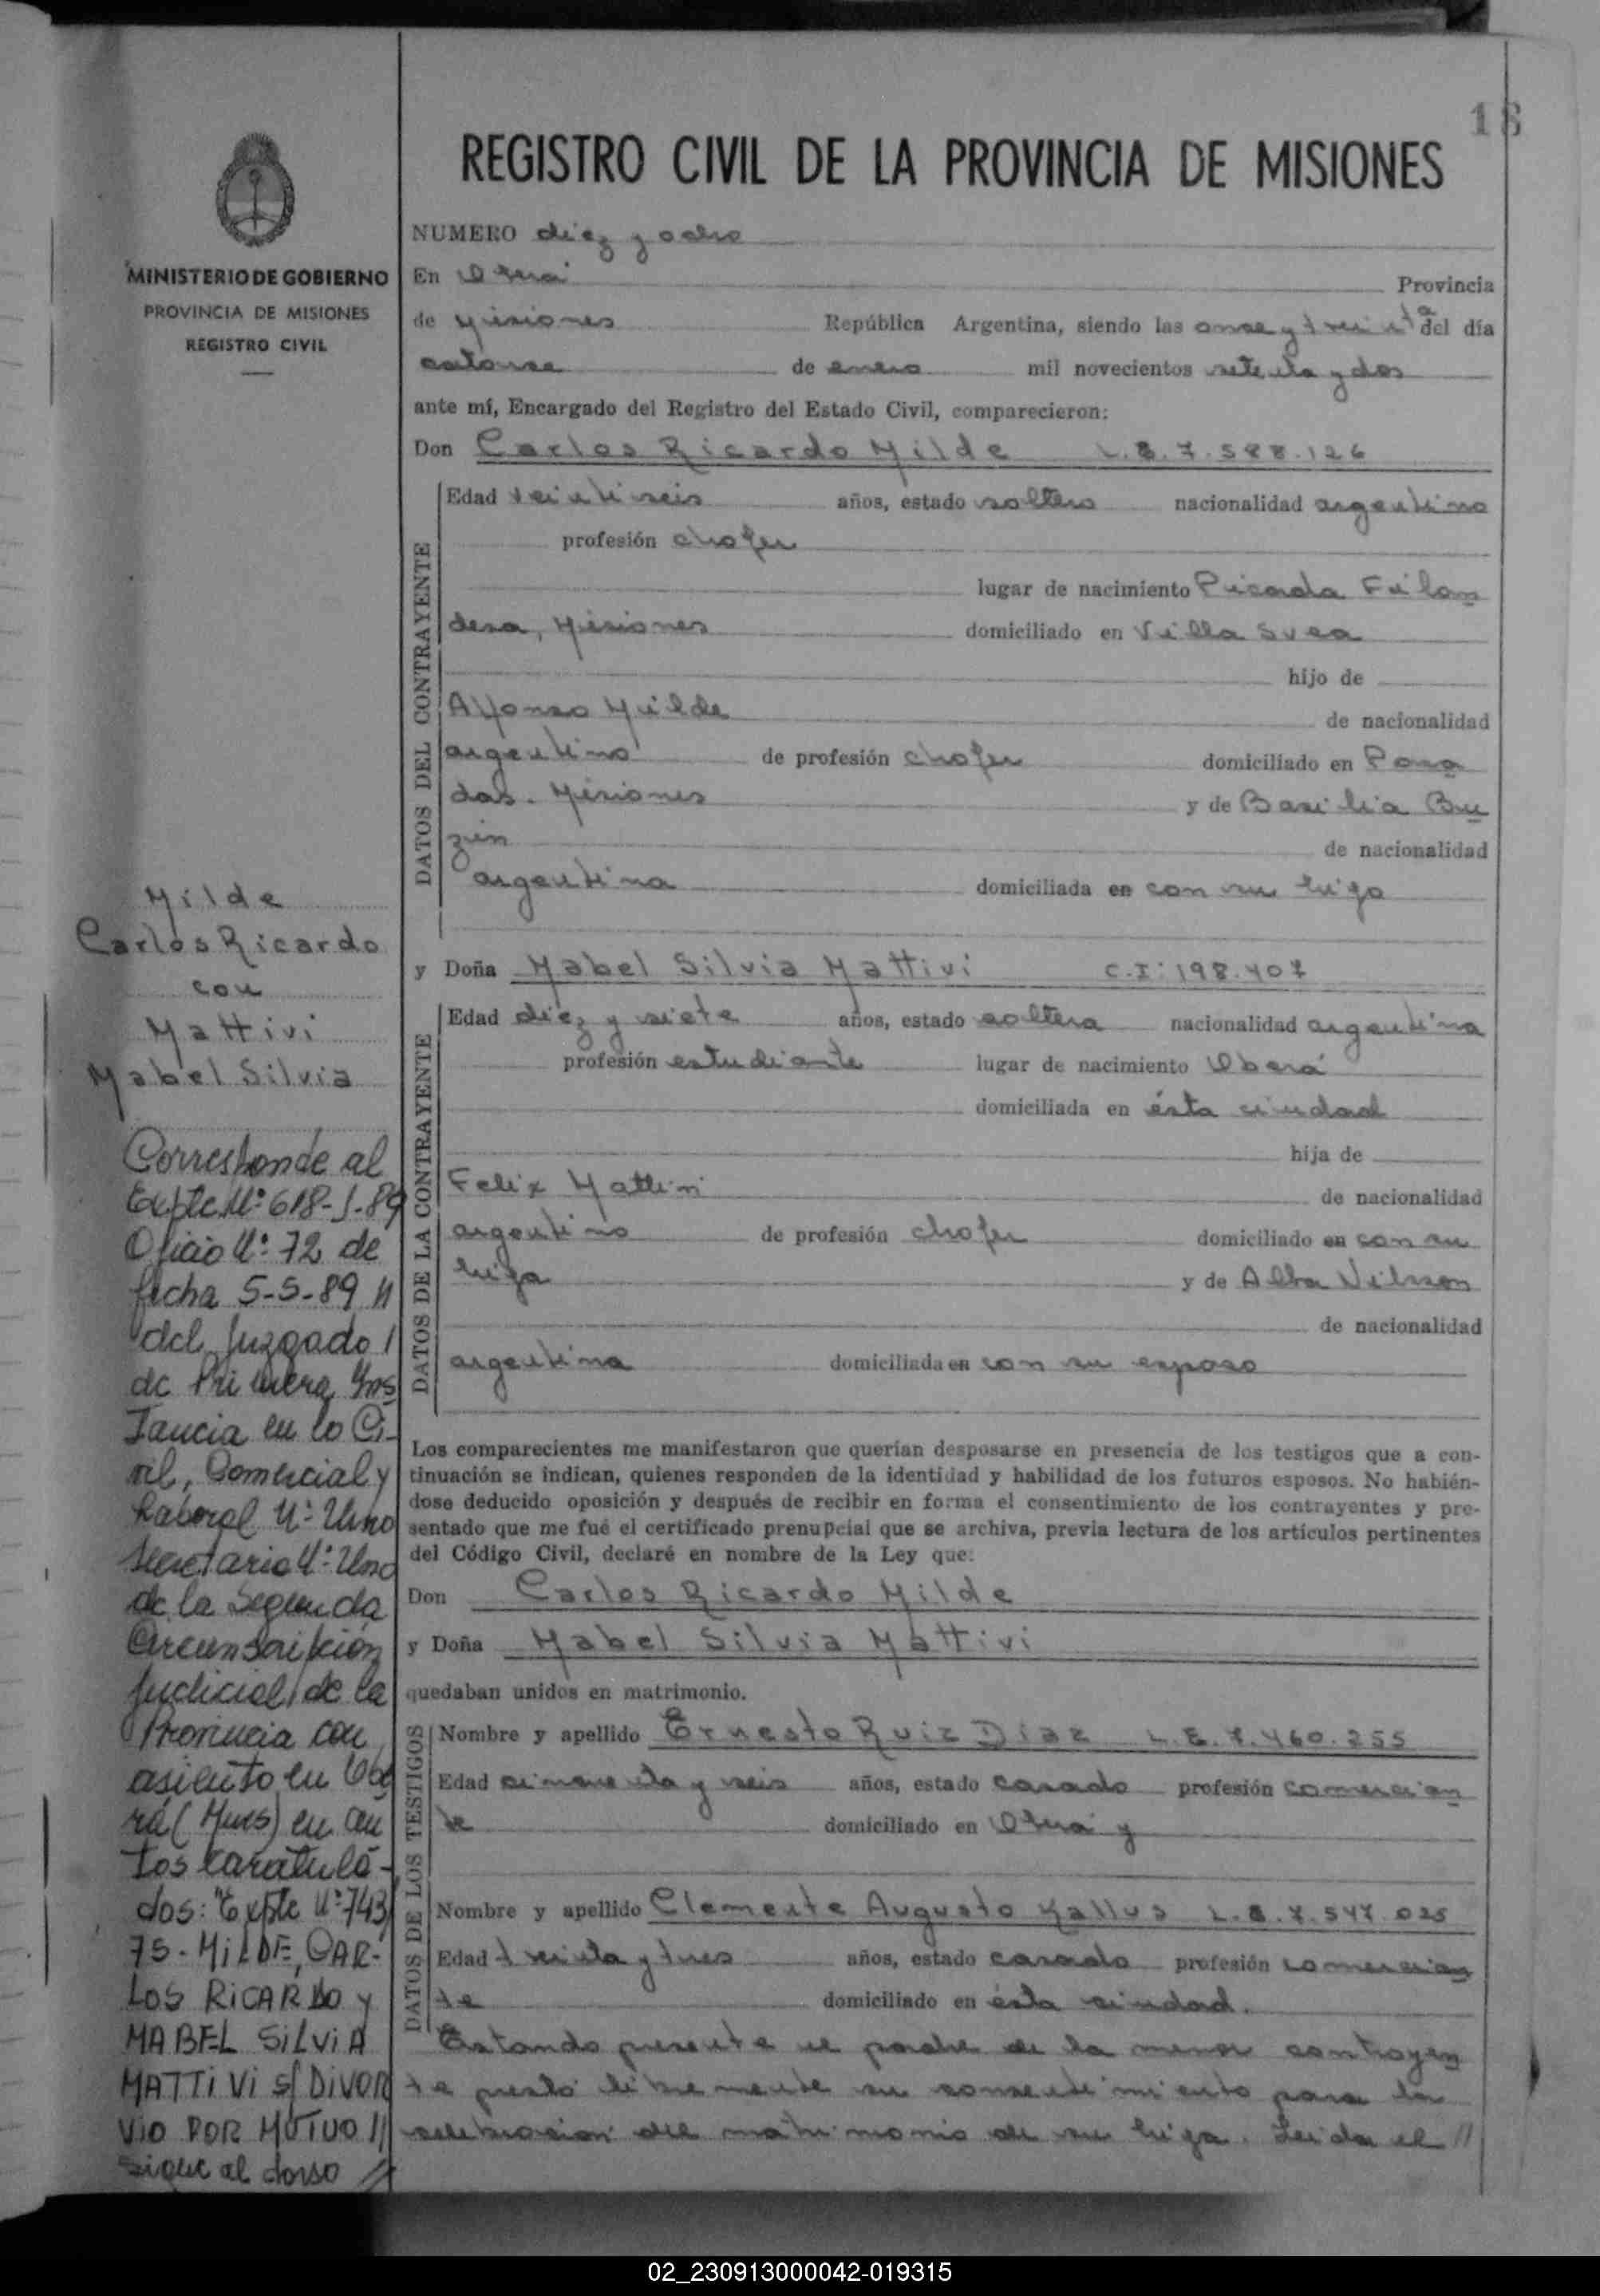 18
REGISTRO CIVIL DE LA PROVINCIA DE MISIONES
MINISTERIO DE GOBIERNO
PROVINCIA DE MISIONES
REGISTRO CIVIL
NUMERO diez y ocho
En Oberá Provincia
de Misiones República Argentina, siendo las once y treinta del día
catorce de enero mil novecientos setenta y dos
ante mí, Encargado del Registro del Estado Civil, comparecieron:
Don Carlos Ricardo Milde L.E. 7.588.126
DATOS DEL CONTRAYENTE
Edad veintiseis años, estado soltero nacionalidad argentino
profesión chofer
lugar de nacimiento Picada Filan
desa, Misiones domiciliado en Villa Svea
hijo de
Alfonso Milde de nacionalidad
argentino de profesión chofer domiciliado en Posa
das. Misiones y de Basilia Bu
zin de nacionalidad
argentina domiciliada en con su hijo
y Doña Mabel Silvia Mattivi C.I: 198.407
DATOS DE LA CONTRAYENTE
Edad diez y siete años, estado soltera nacionalidad argentina
profesión estudiante lugar de nacimiento Oberá
domiciliada en ésta ciudad
hija de
Felix Mattivi de nacionalidad
argentino de profesión chofer domiciliado en con su
hija y de Alba Nilsson
de nacionalidad
argentina domiciliada en con su esposo
Los comparecientes me manifestaron que querían desposarse en presencia de los testigos que a con-
tinuación se indican, quienes responden de la identidad y habilidad de los futuros esposos. No habién-
dose deducido oposición y después de recibir en forma el consentimiento de los contrayentes y pre-
sentado que me fué el certificado prenupcial que se archiva, previa lectura de los artículos pertinentes
del Código Civil, declaré en nombre de la Ley que:
Don Carlos Ricardo Milde
y Doña Mabel Silvia Mattivi
quedaban unidos en matrimonio.
DATOS DE LOS TESTIGOS
Nombre y apellido Ernesto Ruiz Diaz L.E. 7.460.255
Edad cincuenta y seis años, estado casado profesión comercian
te domiciliado en Oberá y
Nombre y apellido Clemente Augusto Kallus L.E. 7.547.025
Edad treinta y tres años, estado casado profesión comercian
te domiciliado en ésta ciudad.
Estando presente el padre de la menor contrayen
te prestó libremente su consentimiento para la
celebracion del matrimonio de su hija. Leida el //
Milde
Carlos Ricardo
con
Mattivi
Mabel Silvia
Corresponde al
Expte Nº 618-J-89
Oficio Nº 72 de
fecha 5-5-89 //
del Juzgado /
de Primera Ins
tancia en lo Ci-
vil, Comercial y
Laboral Nº Uno
Secretaria Nº Uno
de la Segunda
Circunscripción
Judicial de la
Provincia con
asiento en Obe
rá (Mnes) en au
tos caratula-
dos: "Expte Nº 743/
75 - MILDE, CAR-
LOS RICARDO y
MABEL SILVIA
MATTIVI s/ DIVOR
VIO POR MUTUO //
sigue al dorso //
02_230913000042-019315